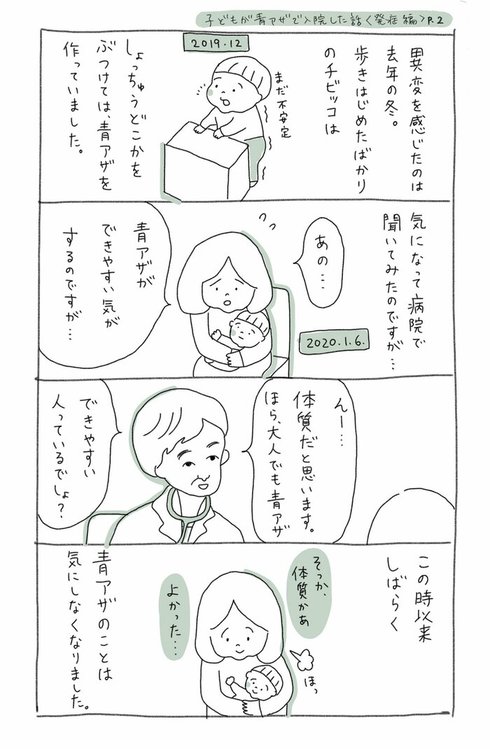 子どもが青アザで入院した話〈発症編〉P.2
2019.12
異変を感じたのは
去年の冬。
歩きはじめたばかり
のチビッコは
まだ不安定
しょっちゅうどこかを
ぶつけては、青アザを
作っていました。
気になって病院で
聞いてみたのですが…
あの…
2020.1.6.
青アザが
できやすい気が
するのですが…
んー…
体質だと思います。
ほら、大人でも青アザ
できやすい
人っているでしょ？
この時以来
しばらく
そっか、
体質かあ
よかった…
ほっ
青アザのことは
気にしなくなりました。